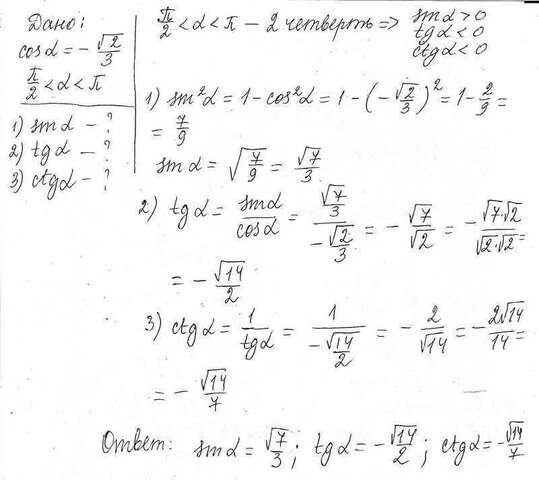 Дано:
cos α = - √2/3
π/2 < α < π
1) sin α - ?
2) tg α - ?
3) ctg α - ?
π/2 < α < π - 2 четверть => sin α > 0
tg α < 0
ctg α < 0
1) sin²α = 1 - cos²α = 1 - (- √2/3)² = 1 - 2/9 =
= 7/9
sin α = √(7/9) = √7/3
2) tg α = sin α/cos α = (√7/3)/(- √2/3) = - √7/√2 = - √7·√2/√2·√2 =
= - √14/2
3) ctg α = 1/tg α = 1/(- √14/2) = - 2/√14 = - 2√14/14 =
= - √14/7
Ответ: sin α = √7/3; tg α = - √14/2; ctg α = - √14/7